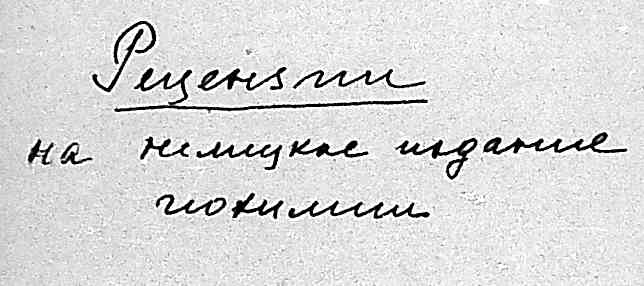 Рецензии
на немецкое издание
геохимии